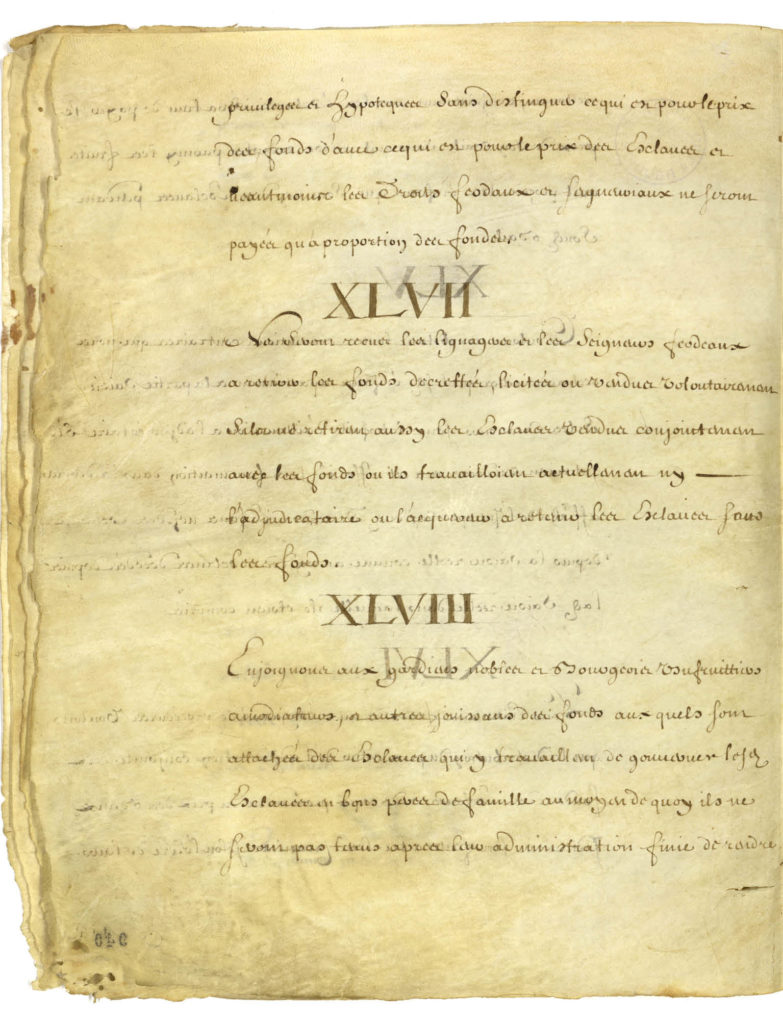 privileges et hypoteques Sans distinguer ce qui est pour le prix
des fonds d'avec ce qui est pour le prix des Esclaves et
neantmoins les Droits feodaux et seigneuriaux ne seront
payés qu'a proportion des fonds
XLVII
Ne Seront receus les lignagers et les Seigneurs feodeaux
a retirer les fonds decrettés, licités ou vendus volontairement
S'ils ne retirent aussy les Esclaves vendus conjointement
avec les fonds ou ils travailloient actuellement ny
l'adjudicataire ou l'acquereur a retenir les Esclaves sans
les fonds.
XLVIII
Enjoignons aux gardiens nobles et Bourgeois Usufruitiers
amodiateurs et autres jouissans des fonds aux quels sont
attachés des Esclaves qui y travaillent de gouverner lesd.
Esclaves en bons peres de famille au moyen de quoy ils ne
seront pas tenus apres leur administration finie de rendre